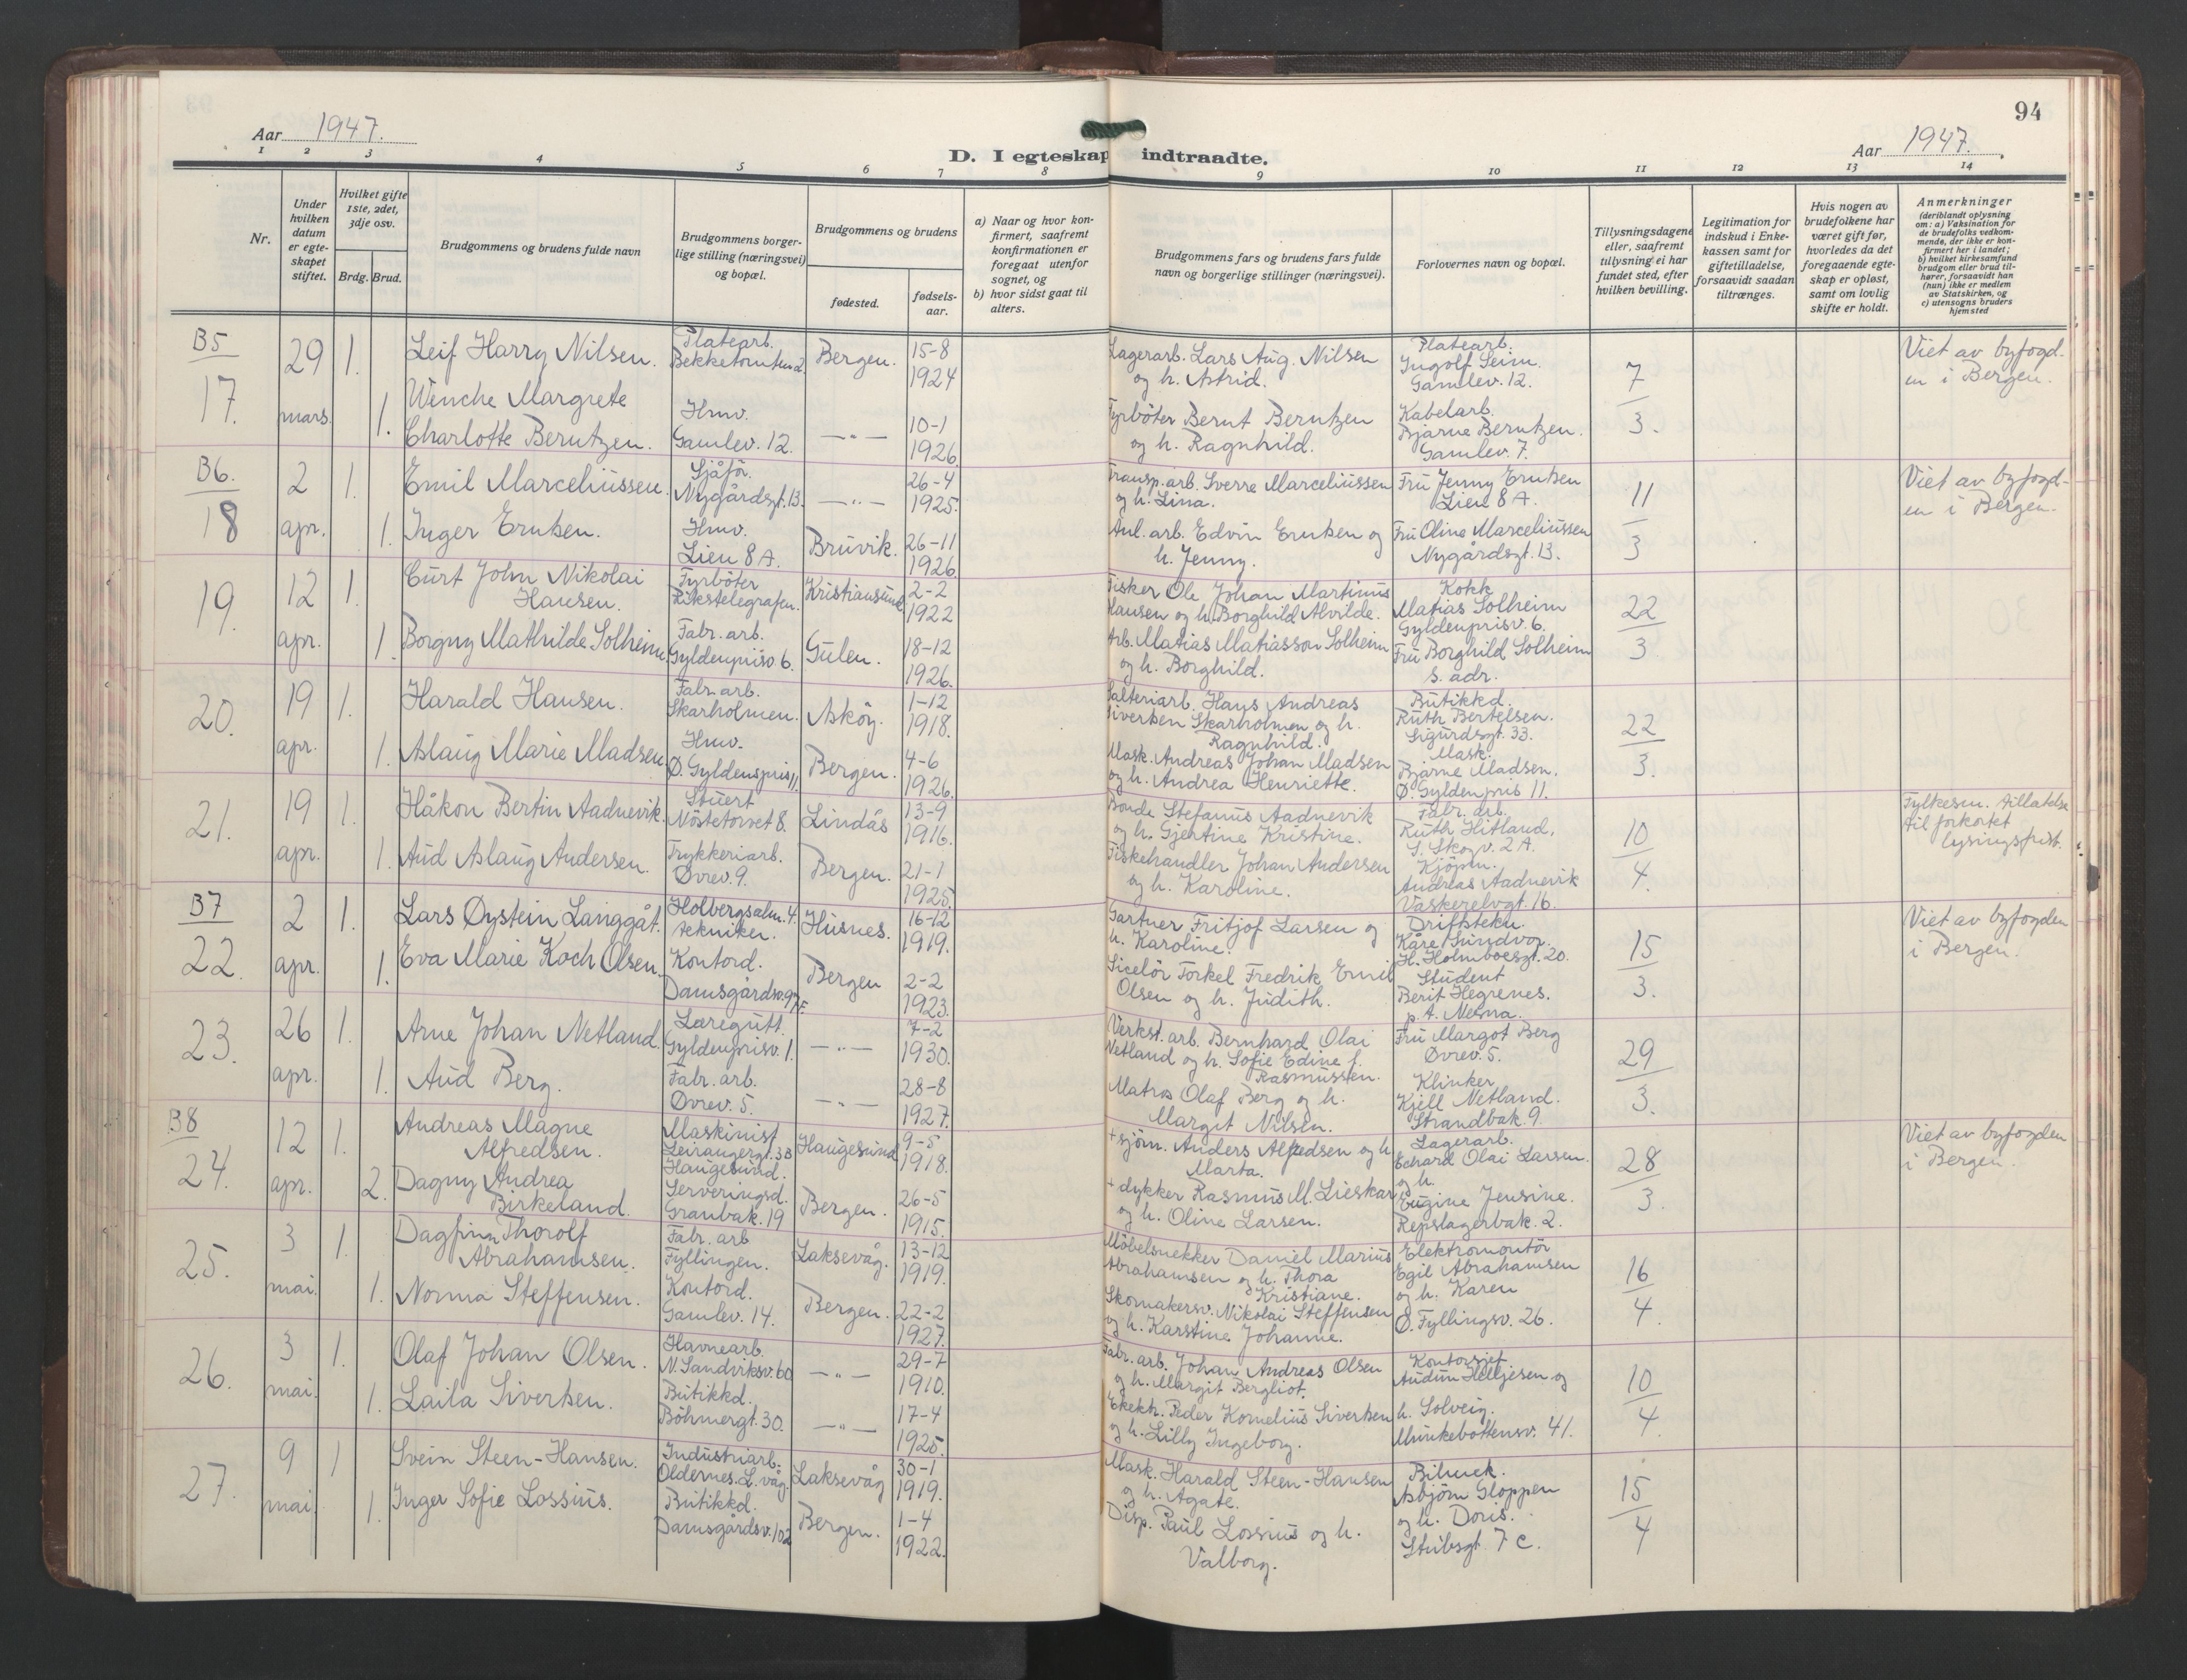 94
Aar 1947.
Aar 1947.
D. I egteskap indtraadte.
1 2 3 4 5 6 7 8 9 10 11 12 13 14
Nr.
Under hvilken datum er egte-skapet stiftet.
Hvilket gifte 1ste, 2det, 3dje osv.
Brdg. Brud.
Brudgommens og brudens fulde navn
Brudgommens borger-lige stilling (næringsvei) og bopæl.
Brudgommens og brudens
fødested.
fødsels-aar.
a) Naar og hvor kon-firmert, saafremt konfirmationen er foregaat utenfor sognet, og
b) hvor sidst gaat til alters.
Brudgommens fars og brudens fars fulde navn og borgerlige stillinger (næringsvei).
Forlovernes navn og bopæl.
Tillysningsdagene eller, saafremt tillysning ei har fundet sted, efter hvilken bevilling.
Legitimation for indskud i Enke-kassen samt for giftetilladelse, forsaavidt saadan tiltrænges.
Hvis nogen av brudefolkene har været gift før, hvorledes da det foregaaende egte-skap er opløst, samt om lovlig skifte er holdt.
Anmerkninger
(deriblandt oplysning om: a) Vaksination for de brudefolks vedkom-mende, der ikke er kon-firmert her i landet;
b) hvilket kirkesamfund brudgom eller brud til-hører, forsaavidt han (hun) ikke er medlem av Statskirken, og
c) utensogns bruders hjemsted
B5
17.
29 mars
1.
Leif Harry Nilsen.
Platearb.
Bekketomten 2.
Bergen.
15-8
1924
Lagerarb. Lars Aug. Nilsen
og h. Astrid.
Platearb.
Ingolf Seim.
Gamlev. 12.
7/3.
Viet av byfogd-
en i Bergen.
1.
Wenche Margrete
Charlotte Berntzen.
Hmv.
Gamlev. 12.
—"—
10-1
1926.
Fyrböter Bernt Berntzen
og h. Ragnhild.
Kabelarb.
Bjarne Berntzen.
Gamlev. 7.
B6.
18
2 apr.
1.
Emil Marceliussen.
Sjåfør.
Nygårdsgt. 13.
—"—
26-4
1925.
Transp. arb. Sverre Marceliussen
og h. Lina.
Fru Jenny Eriksen
Lien 8 A.
11/3
Viet av byfogd-
en i Bergen.
1.
Inger Eriksen.
Hmv.
Lien 8 A.
Bruvik.
26-11
1926.
Anl. arb. Edvin Eriksen og
h. Jenny.
Fru Olina Marceliussen
Nygårdsgt. 13.
19.
12 apr.
1.
Curt John Nikolai
Hansen.
Fyrböter
Rikstelegrafen.
Kristiansund
2-2
1922
Fisker Ole Johan Martinius
Hansen og h. Borghild Alvilde.
Kokk
Matias Solheim
Gyldenprisv. 6.
22/3
1.
Borgny Mathilde Solheim.
Fabr. arb.
Gyldenprisv. 6.
Gulen.
18-12
1926.
Arb. Matias Matiasson Solheim
og h. Borghild.
Fru Borghild Solheim
s. adr.
20.
19 apr.
1.
Harald Hansen.
Fabr. arb.
Skarholmen.
Askøy.
1-12
1918.
Salteriarb. Hans Andreas
Sivertsen Skarholmen og h.
Ragnhild.
Butikkd.
Ruth Bertelsen.
Sigurdsgt. 33.
22/3.
1.
Aslaug Marie Madsen
Hmv.
Ø. Gyldenspris 11.
Bergen.
4-6
1926.
Mask. Andreas Johan Madsen
og h. Andrea Henriette.
Mask.
Bjarne Madsen.
Ø. Gyldenpris 11.
21.
19 apr.
1.
Håkon Bertin Aadnevik.
Stuert
Nöstetorvet 8.
Lindås
13-9
1916.
Bonde Stefanus Aadnevik
og h. Gjertine Kristine.
Fabr. arb.
Ruth Hitland.
S. Skogv. 2 A.
10/4.
Fylkesm. tillatelse
til forkortet
lysingsfrist.
1.
Aud Aslaug Andersen.
Trykkeriarb.
Øvrev. 9.
Bergen.
21-1
1925.
Fiskehandler Johan Andersen
og h. Karoline.
Kjöpm.
Andreas Aadnevik
Vaskerelvgt. 16.
B7
22.
2 apr.
1.
Lars Øystein Langgåt.
Holbergsalm. 4.
tekniker.
Husnes.
16-12
1919.
Gartner Fritjof Larsen og
h. Karoline.
Driftstekn.
Kåre Sundvor.
H. Holmboesgt. 20.
15/3.
Viet av byfogden
i Bergen.
1.
Eva Marie Koch Olsen.
Kontord.
Damsgårdsv. 97 F.
Bergen
2-2
1923.
Torkel Fredrik Emil
Olsen og h. Judith.
Student
Berit Hegrenes.
23.
26 apr.
1.
Arne Johan Netland.
Læregutt.
Gyldenprisv. 1.
—"—
7-2
1930.
Verkst. arb. Bernhard Olai
Netland og h. Sofie Edine f.
Rasmussen.
Fru Margot Berg
Øvrev. 5.
29/3.
1.
Aud Berg.
Fabr. arb.
Øvrev. 5.
—"—
28-8
1927.
Matros Olaf Berg og h.
Margit Nilsen.
Klinker
Kjell Netland.
Strandbak. 9.
B8
24.
12 apr.
1.
Andreas Magne
Alfredsen.
Maskinist
Haugesund.
Haugesund
9-5
1918.
+ sjöm. Anders Alfredsen og h
Marta.
Lagerarb.
Edvard Olai Larsen.
og h.
28/3.
Viet av byfogden
i Bergen.
2.
Dagny Andrea
Birkeland.
Serveringsd.
Granbak. 19
Bergen.
26-5
1915.
+ dykker Rasmus M. Lieskar
og h. Oline Larsen.
Eugine Jensine.
Repslagerbak. 2.
25.
3 mai.
1.
Dagfinn Thorolf
Abrahamsen.
Fabr. arb
Fyllingen.
Laksevåg.
13-12
1919.
Möbelsnekker Daniel Marius
Abrahamsen og h. Thora
Kristiane.
Elektromontör
Egil Abrahamsen
og h. Karen
Ø. Fyllingsv. 26.
16/4.
1.
Norma Steffensen.
Kontord.
Gamlev. 14.
Bergen.
22-2
1927.
Skomakersv. Nikolai Steffensen
og h. Karstine Johanne.
26.
3 mai.
1.
Olaf Johan Olsen.
Havnearb.
N. Sandviksv. 60
—"—
29-7
1910.
Fabr. arb. Johan Andreas Olsen
og h. Margit Bergliot.
Kontorsjef
Audun Helljesen og
h. Solveig.
Munkebottensv. 41.
10/4.
1.
Laila Sivertsen.
Butikkd.
Böhmergt. 30.
—"—
17-4
1925.
Peder Kornelius Sivertsen
og h. Lilly Ingeborg.
27.
9 mai.
1
Svein Steen-Hansen.
Industriarb.
Oldernes. L.våg.
Laksevåg
30-1
1919.
Mask. Harald Steen-Hansen
og h. Agate.
Asbjörn Gloppen
og h. Doris.
Stubsgt. 7 c.
15/4
1.
Inger Sofie Lossius.
Butikkd.
Damsgårdsv. 102
Bergen.
1-4
1922.
Disp. Paul Lossius og h.
Valborg.